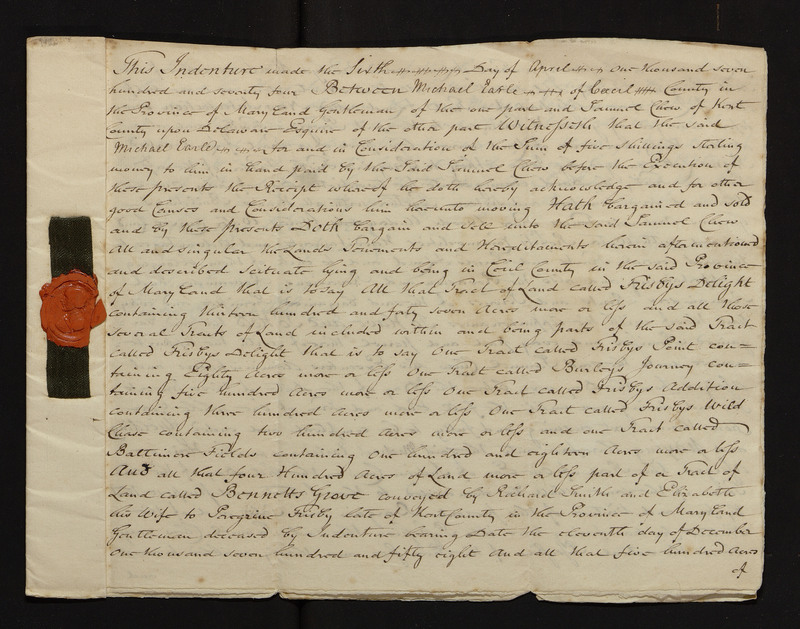 This Indenture made the Sixth Day of April one thousand seven
hundred and seventy four Between Michael Earle of Cæcil County in
the Province of MaryLand Gentleman of the one part and Samuel Chew of Kent
County upon Delaware Esquire of the other part Witnesseth that the said
Michael Earle for and in Consideration of the Sum of five Shillings Sterling
money to him in hand paid by the Said Samuel Chew before the Execution of
these presents the Receipt whereof he doth hereby acknowledge and for other
good Causes and Considerations him hereunto moving Hath bargained and sold
and by these presents Doth bargain and Sell unto the said Samuel Chew
All and singular the Lands Tenements and Hereditaments herein aftermentioned
and described Scituate lying and being in Cecil County in the said Province
of MaryLand that is to say All that Tract of Land called Frisbys Delight
containing thirteen hundred and forty seven Acres more or less and all those
several Tracts of Land included within and being parts of the said Tract
called Frisbys Delight that is to say One Tract called Frisbys Point con=
taining Eighty Acres more or less One Tract called Burleys Journey con=
taining five hundred Acres more or less One Tract called Frisbys Addition
containing three hundred Acres more or less One Tract called Frisbys Wild
Chase containing two hundred Acres more or less and one Tract called
Baltimore Fields containing one hundred and eighteen Acres more or less
And all that four Hundred Acres of Land more or less part of a Tract of
Land called Bennetts Grove conveyed by Richard Smith and Elizabeth
his Wife to Peregrine Frisby late of Kent County in the Province of MaryLand
Gentleman deceased by Indenture bearing Date the eleventh day of December
One thousand seven hundred and fifty eight And all that five hundred Acres
of